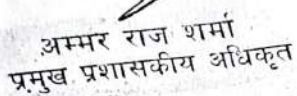 अम्मर राज शर्मा
प्रमुख प्रशासकीय अधिकृत